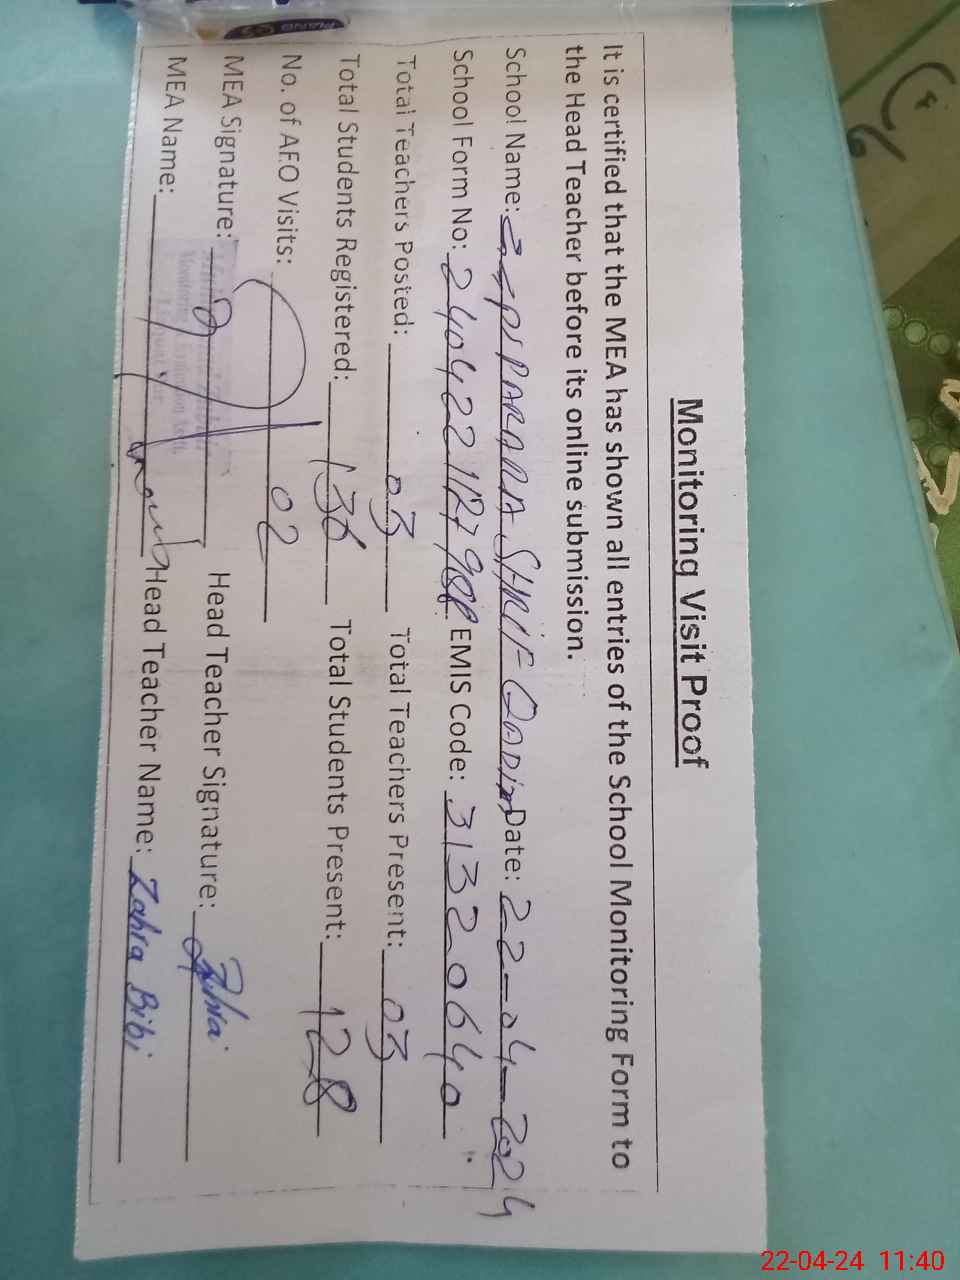 Monitoring Visit Proof
It is certified that the MEA has shown all entries of the School Monitoring Form to
the Head Teacher before its online submission.
School Name: PARARA SHRIF QADIM Date: 22-04-2024
School Form No: EMIS Code: 31320640
Total Teachers Posted: 03 Total Teachers Present: 03
Total Students Registered: 136 Total Students Present: 128
No. of AEO Visits: 02
MEA Signature: Head Teacher Signature: Zahra
MEA Name: Head Teacher Name: Zahra Bibi
22-04-24 11:40